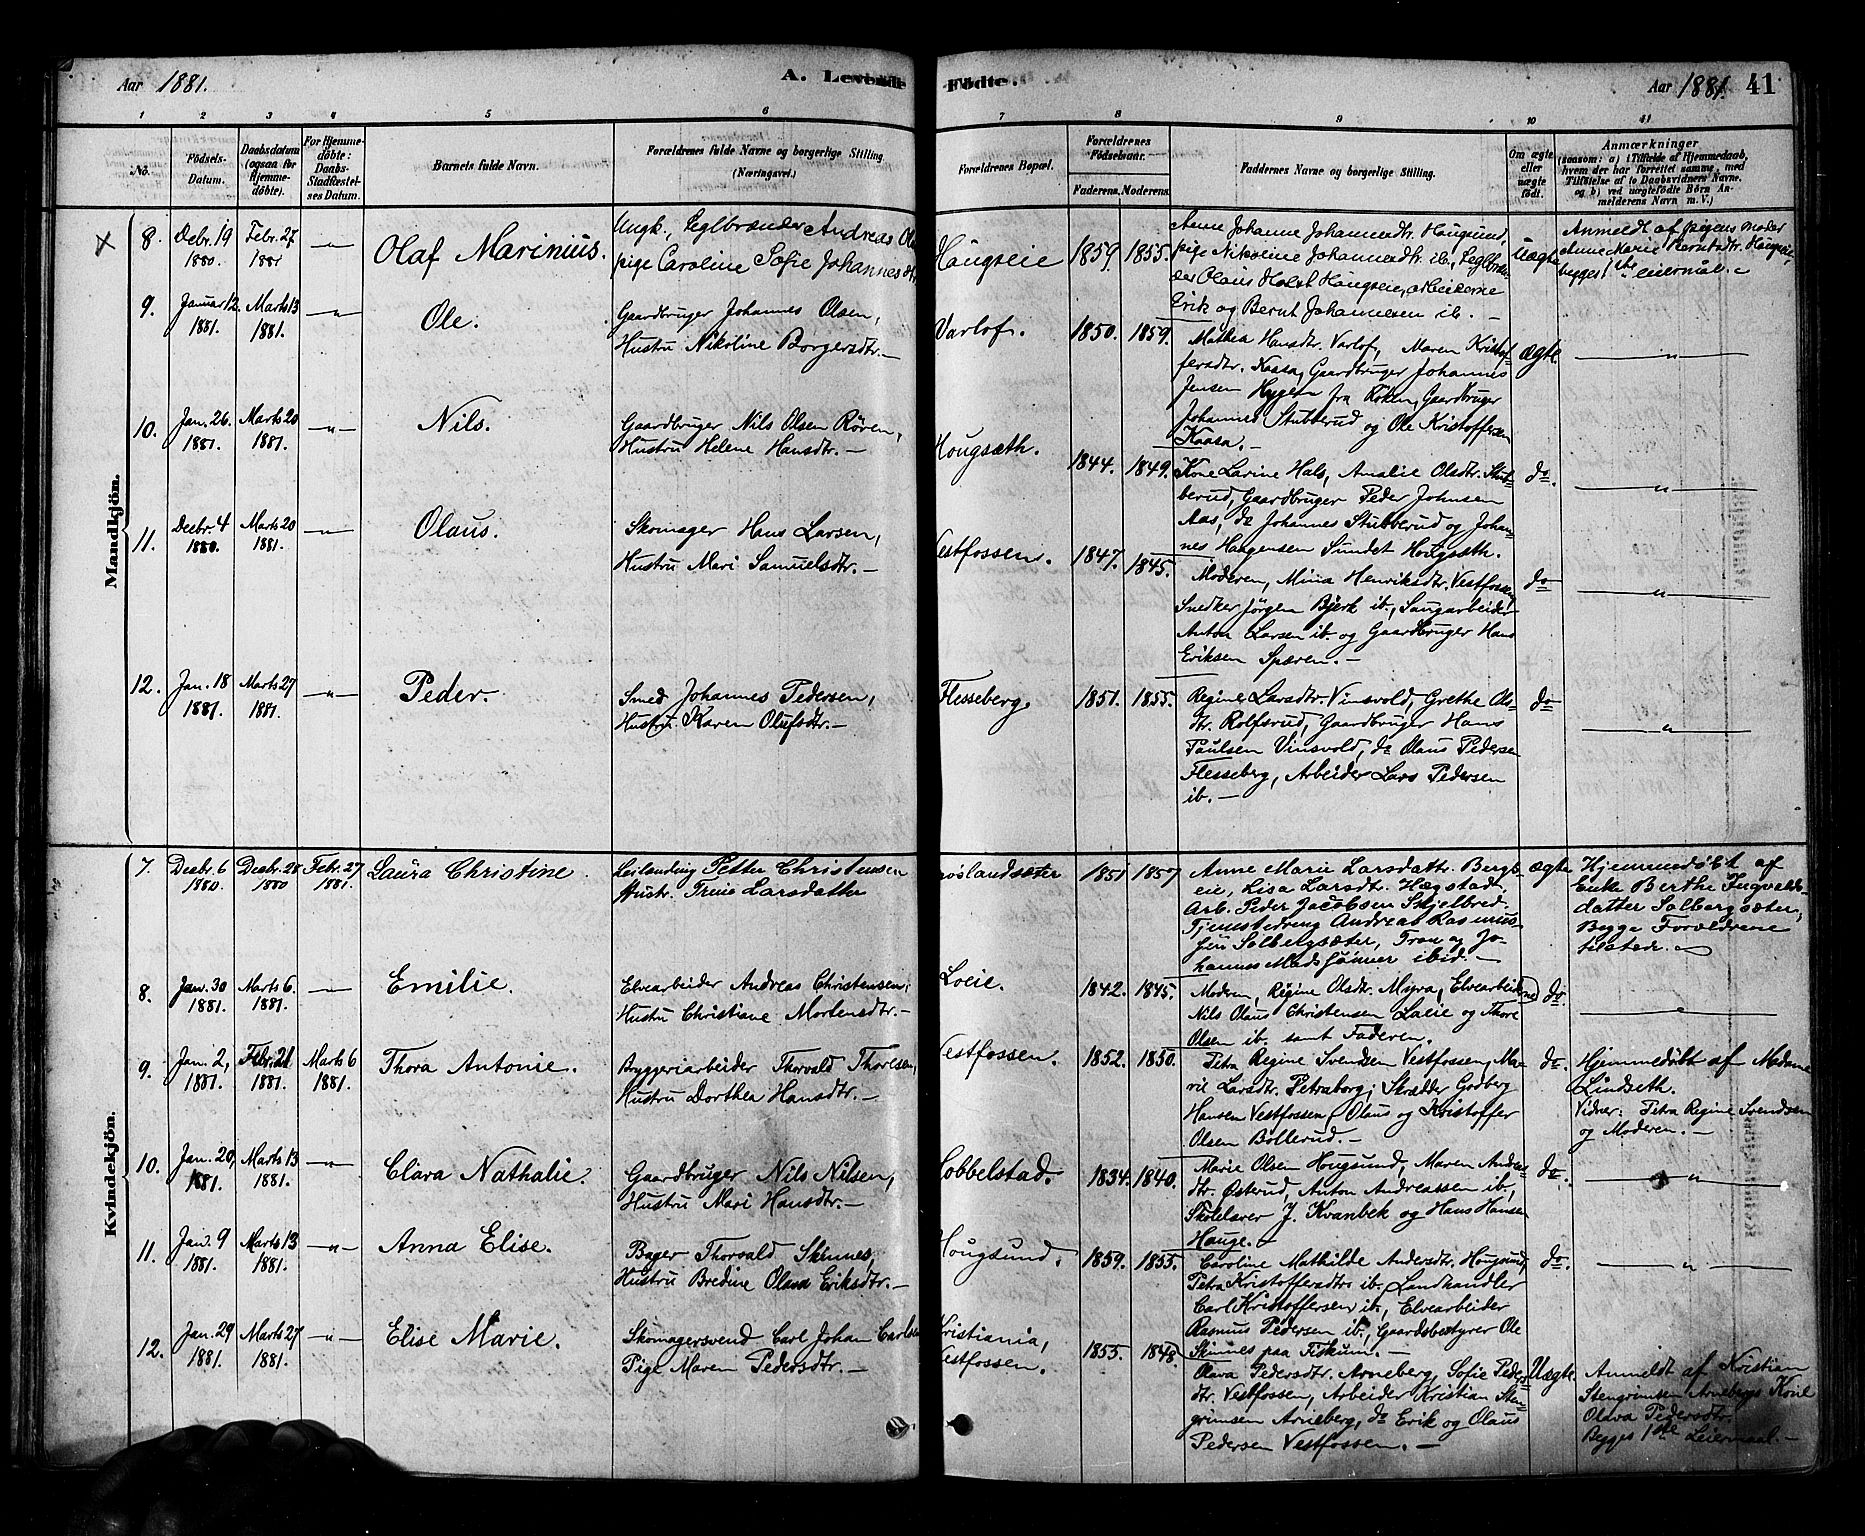 Aar 1881.
A. Levende Fødte.
Aar 1881. 41
1 2 3 4 5 6 7 8 9 10 11
No.
Fødsels-
Datum.
Daabsdatum
(ogsaa for
Hjemme-
døbte).
For Hjemme-
døbte:
Daabs-
Stadfæstel-
ses Datum.
Barnets fulde Navn.
Forældrenes fulde Navne og borgerlige Stilling
(Næringsvei.)
Forældrenes Bopæl.
Forældrenes
Fødselsaar.
Faderens. Moderens.
Faddernes Navne og borgerlige Stilling.
Om ægte
eller
uægte
født.
Anmærkninger
(saasom: a) i Tilfælde af Hjemmedaab,
hvem der har forrettet samme, med
Tilføielse af to Daabsvidners Navne,
og b) ved uægtefødte Børn An-
melderens Navn m. V.)
Mandkjön.
8. Decbr. 19 1880. Febr. 27 1881 —"—
Olaf Marinius.
Ungk., Teglbrænder Andreas
pige Caroline Sofie Johannesdtr.
Hougseie 1859. 1855.
Anne Johanne Johannesdtr. Hougsund,
pige Nikoline Johannesdtr. ib., Teglbræn-
der Olaus Holst Hougseie, arbeiderne
Erik og Bernt Johannesen ib. —
Uægte
Anmeldt af pigens moder
Anne Marie Berntsdtr. Hougseie,
begges 1ste leiermål. —
9. Januar 12. 1881. Marts 13 1881. —"—
Ole.
Gaardbruger Johannes Olsen,
Hustru Nikoline Borgersdtr. —
Varlof. 1850. 1859.
Mathea Hansdtr. Varlof, Maren Kristof-
fersdtr. Kaasa, Gaardbruger Johannes
Jensen Hygen fra Röken, Gaardbruger
Johannes Stubberud og Ole Kristoffersen
Kaasa. —
ægte. —"—
10. Jan. 26. 1881. Marts 20 1881. —"—
Nils.
Gaardbruger Nils Olsen Rören,
Hustru Helene Hansdtr. —
Hougsæth. 1844. 1849.
Kone Lavine Hals, Amalie Olsdtr. Stub-
berud, Gaardbruger Peder Johnsen
Aas, do Johannes Stubberud og Johan-
nes Haagensen Sundet Hougsæth.
do. —"—
11. Decbr. 4 1880. Marts 20 1881. —"—
Olaus.
Skomager Hans Larsen,
Hustru Mari Samuelsdtr. —
Vestfossen. 1847. 1845.
Moderen, Mina Henriksdtr. Vestfossen,
Snedker Jörgen Bjerk ib., Saugarbeider
Anton Larsen ib. og Gaardbruger Hans
Eriksen Spæren. —
do —"—
12. Jan. 18 1881. Marts 27 1881. —"—
Peder.
Smed Johannes Pedersen,
Hustru Karen Olufsdtr. —
Flesseberg. 1851. 1855.
Regine Larsdtr. Vinsvold, Grethe Ols-
dtr. Rolfsrud, Gaardbruger Hans
Paulsen Vinsvold, do Olaus Pedersen
Flesseberg, Arbeider Lars Pedersen
ib. —
do —"—
Kvindekjön.
7. Decbr. 6 1880. Decbr. 28 1880 Febr. 27 1881.
Laura Christine.
Leilending Petter Christensen
Hustr. Trine Larsdatter
1851 1857
Anne Marie Larsdattr. Bergs-
eie, Lisa Larsdtr. Hægstad,
Arb. Peder Jacobsen Skjelbred.
Tjenestedreng Andreas Rasmus-
sen Solbergsæter,
hannes Madssönner ibid. —
ægte
Hjemmedøbt af
Enke Berthe Ingvalds-
datter Solbergsæter,
Begge Forældrene
tilstede. —
8. Jan. 30 1881. Marts 6. 1881. —"—
Emilie.
Elvearbeider Andreas Christensen,
Hustru Christiane Mortensdtr. —
Loeie. 1842. 1845.
Modren, Regine Olsdtr. Myra, Elvearbeiderne
Nils Olaus Christensen Loeie og Thore
Olsen ib. samt Faderen.
do. —"—
9. Jan. 2, 1881. Febr. 21 1881. Marts 6 1881.
Thora Antonie.
Bryggeriarbeider Thorvald Thoresen,
Hustru Dorthea Hansdtr. —
Vestfossen. 1852. 1850.
Petra Regine Svendsen Vestfossen, Ma-
rie Larsdtr. Petraborg, Skrædder Godberg
Hansen Vestfossen, Olaus og Kristoffer
Olsen Bollerud. —
do.
Hjemmedøbt af Madame
Lindseth.
Vidner: Petra Regine Svendsen
og Moderen. —
10. Jan. 20, 1881. Marts 13 1881. —"—
Clara Nathalie.
Gaardbruger Nils Nilsen,
Hustru Mari Hansdtr. —
Lobbelstad. 1834. 1840.
Marie Olsen Hougsund, Maren Andrea-
dtr. Østerud, Anton Andreassen ib.,
Skolelærer J. Kvanbek og Hans Hansen
Hauge. —
do. —"—
11. Jan. 9 1881. Marts 13 1881. —"—
Anna Elise.
Bager Thorvald Skinnes,
Hustru Bredine Olava Eriksdtr. —
Hougsund. 1859. 1855.
Caroline Mathilde Andersdtr. Hougsund,
Petra Kristoffersdtr. ib. Landhandler
Carl Kristoffersen ib., Elvearbeider
Rasmus Pedersen ib., Gaardsbestyrer Ole
Skinnes paa Fiskum. —
do. —"—
12. Jan. 29 1881. Marts 27 1881. —"—
Elise Marie.
Skomagersvend Carl Johan Carlsen
Pige Maren Pedersdtr. —
Kristiania,
Vestfossen.
1855. 1848.
Olava Pedersdtr. Arneberg, Sofie Peders-
dtr. Vestfossen, Arbeider Kristian Sten-
grimsen Arneberg, do Erik og Olaus
Pedersen Vestfossen. —
Uægte.
Anmeldt af Kristian
Stengrimsen Arnebergs Kone
Olava Pedersdtr.
Begges 1ste Leiermaal. —